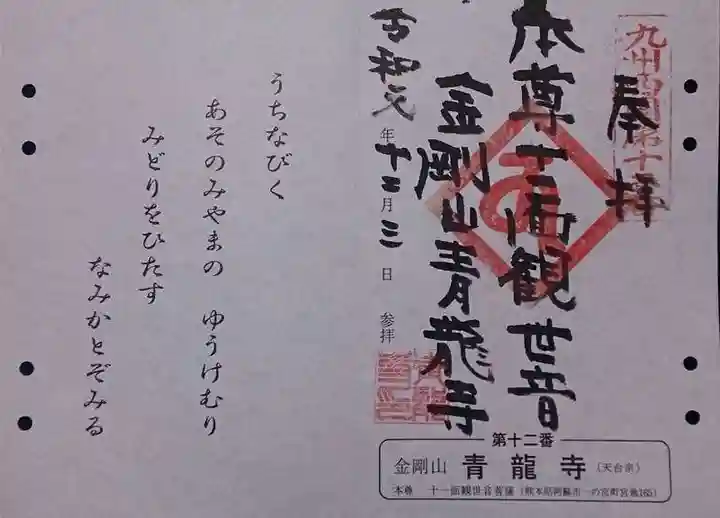 奉拝
本尊十一面観世音
金剛山青龍寺
令和元年十二月三日 参拝
うちなびく
あそのみやまの ゆうけむり
みどりをひたす
なみかとぞみる
第十二番
金剛山 青龍寺 (天台宗)
本尊 十一面観世音菩薩